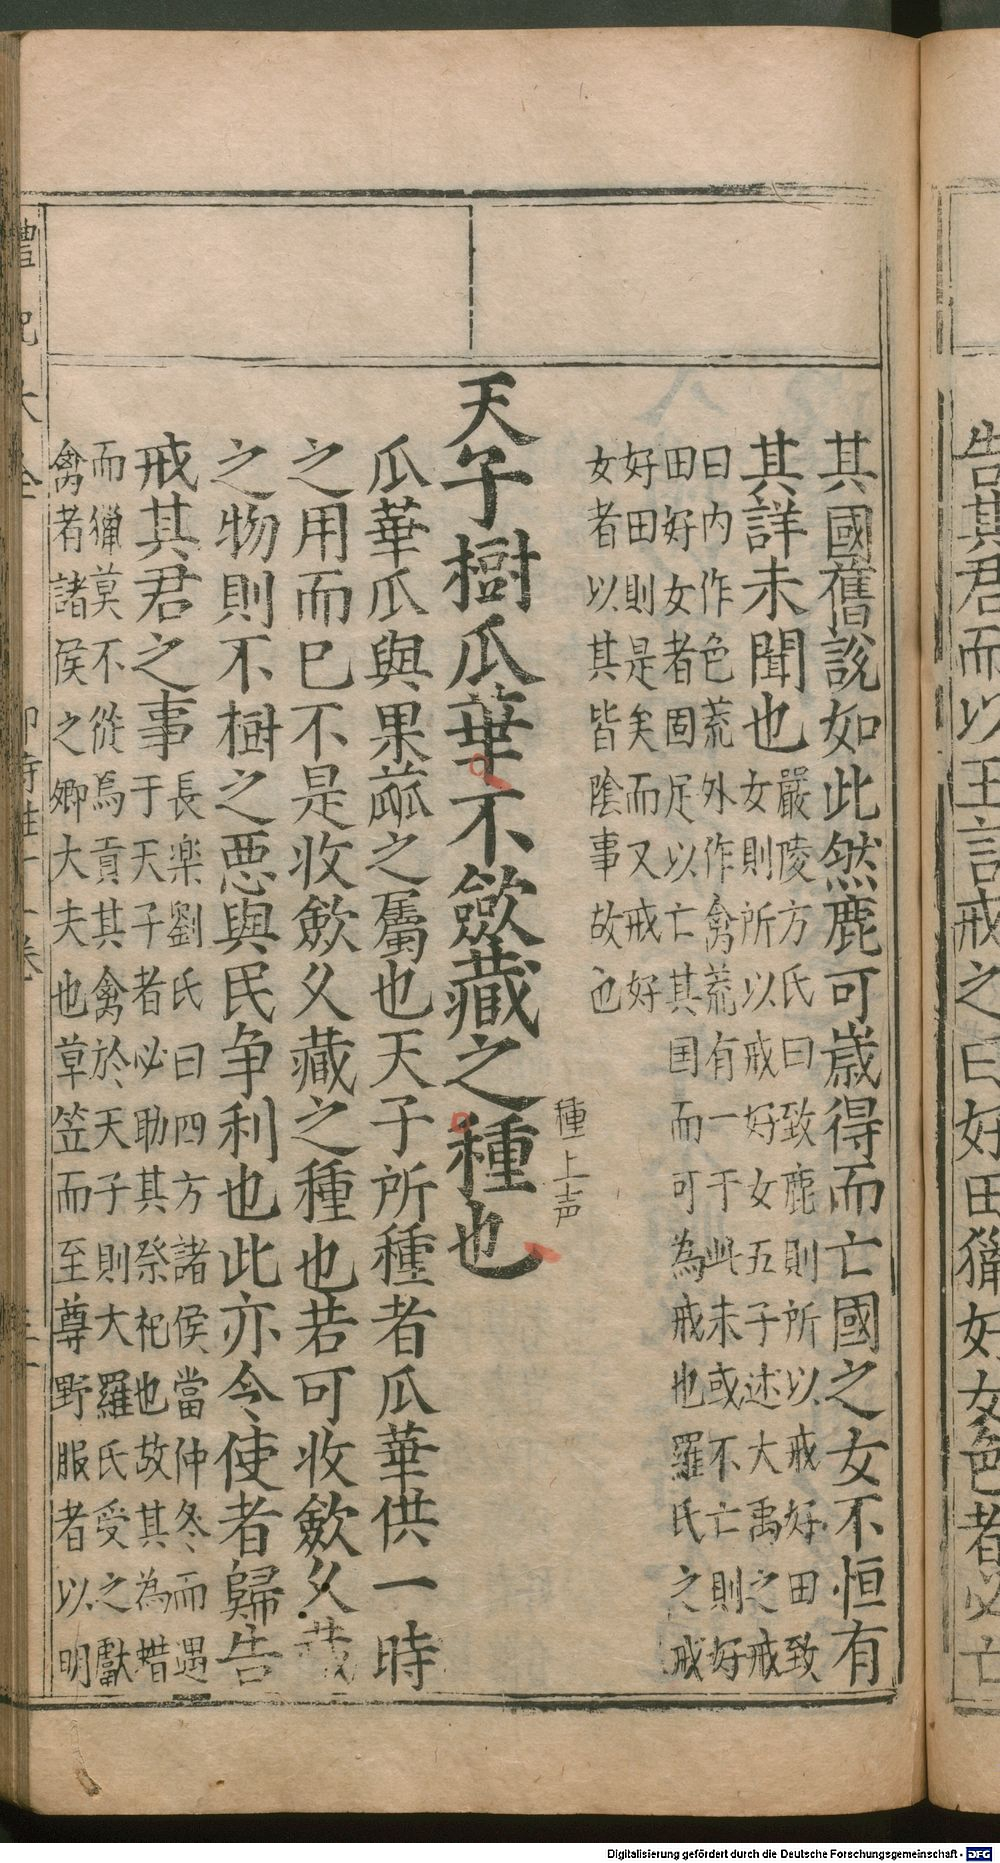 告其君而以王言戒之曰好田獵好女色者必亡
其國舊說如此然鹿可歲得而亡國之女不恒有
其詳未聞也
嚴陵方氏曰致鹿則所以戒好田致
女則所以戒好女五子述大禹之戒
曰內作色荒外作禽荒有一于此未或不亡則好
田好女者固足以亡其国而可為戒也羅氏之戒
好田則是矣而又戒好
女者以其皆陰事故也
天子樹瓜華不斂藏之種也
種上声
瓜華瓜與果蓏之屬也天子所種者瓜華供一時
之用而已不是收斂久藏之種也若可收斂久藏
之物則不樹之惡與民争利也此亦令使者歸告
戒其君之事
長楽劉氏曰四方諸侯當仲冬而遇
于天子者必助其祭祀也故其為蜡
而獵莫不從焉貢其禽於天子則大羅氏受之獻
禽者諸侯之卿大夫也草笠而至尊野服者以明
禮記大全
郊特牲十一卷